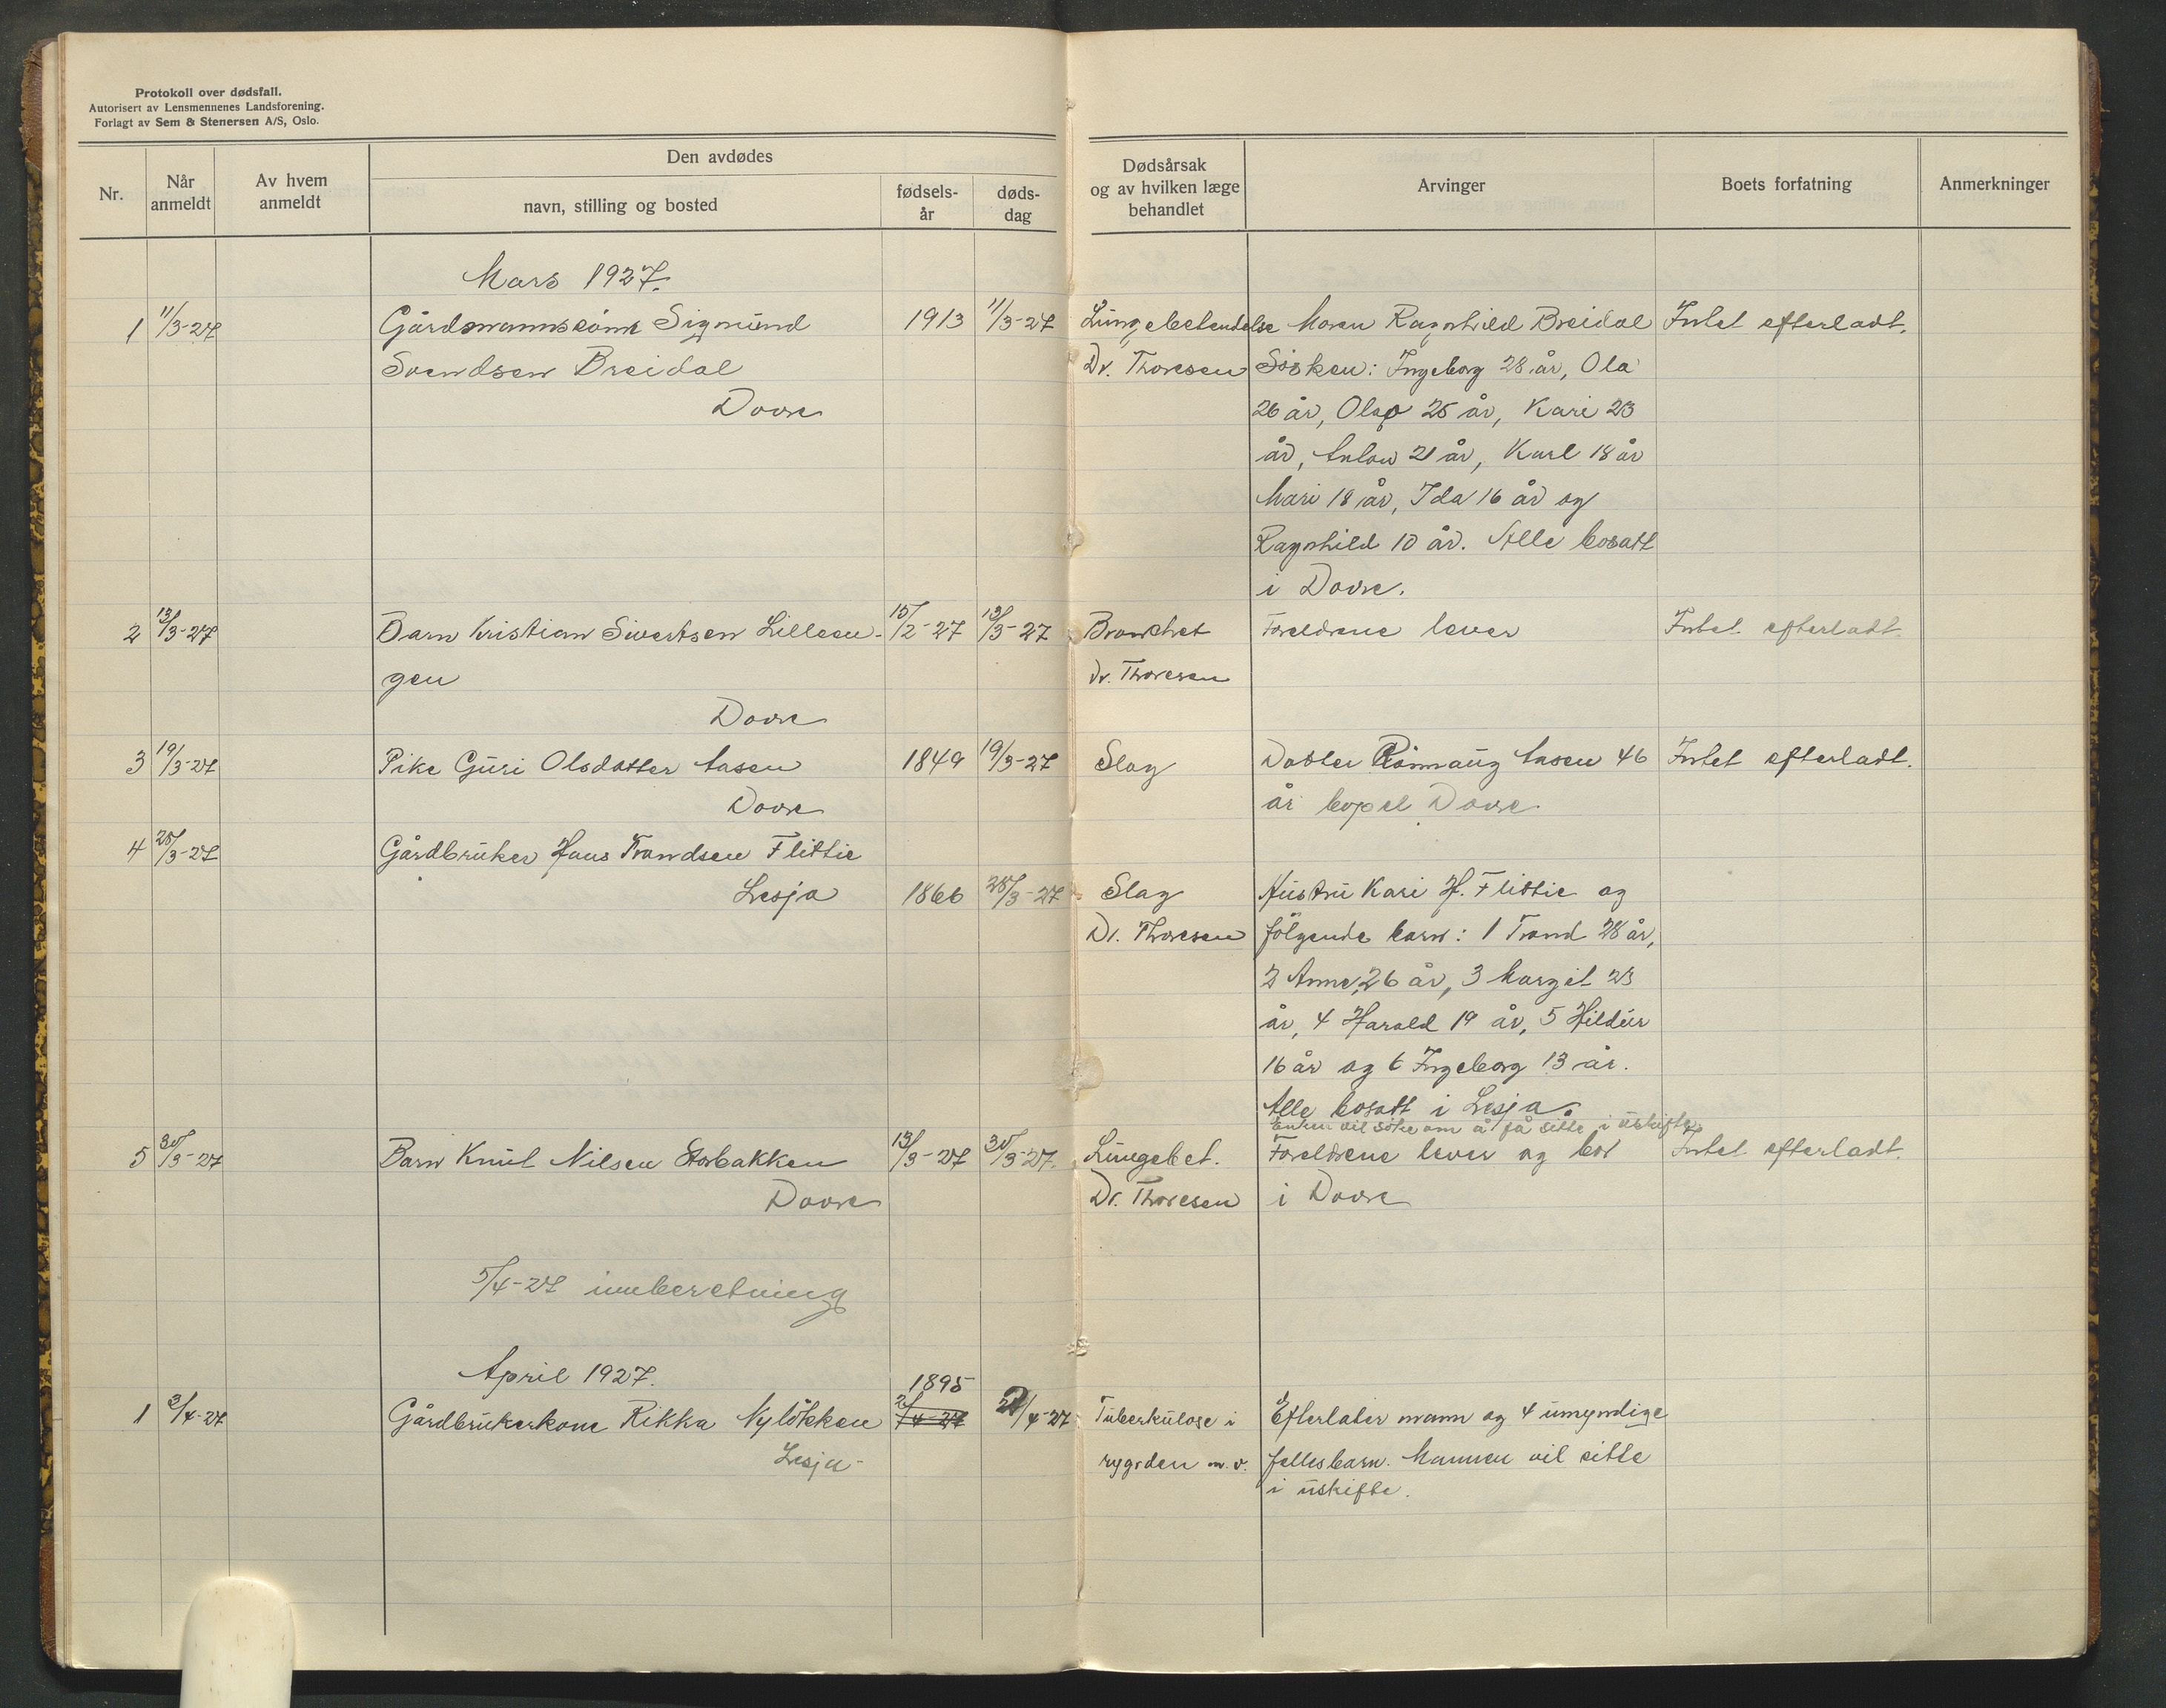 Protokoll over dødsfall.
Autorisert av Lensmennenes Landsforening.
Forlagt av Sem & Stenersen A/S, Oslo.
Nr.
Når anmeldt
Av hvem anmeldt
Den avdødes
navn, stilling og bosted
fødsels-år
døds-dag
Dødsårsak og av hvilken læge behandlet
Arvinger
Boets forfatning
Anmerkninger
Mars 1927.
1 11/3-27 Gårdmannssønn Sigmund 1913 11/3-27 Lungebetendelse Moren Ragnhild Breidal Intet efterladt.
Svendsen Breidal Dr. Thoresen Søsken: Ingeborg 28 år, Ola
Dovre 26 år, Olaf 25 år, Kari 23
år, Anton 21 år, Karl 18 år
Mari 18 år, Ida 16 år og
Ragnhild 10 år. Alle bosatt
i Dovre.
2 13/3-27 Barn Kristian Sivertsen Lilleen- 15/2-27 13/3-27 Bronchet Foreldrene lever Intet efterladt.
gen dr. Thoresen
Dovre
3 19/3-27 Pike Guri Olsdatter Aasen 1849 19/3-27 Slag Datter Rønnaug Aasen 46 Intet efterladt.
Dovre år bopel Dovre.
4 28/3-27 Gårdbruker Hans Trondsen Flittie
Lesja 1866 28/3-27 Slag Hustru Kari H. Flittie og
Dr. Thoresen følgende barn: 1 Trond 28 år,
2 Anne, 26 år, 3 Margit 23
år, 4 Harald 19 år, 5 Hildur
16 år og 6 Ingeborg 13 år.
Alle bosatt i Lesja.
Enken vil søke om å få sitte i uskifte.
5 30/3-27 Barn Knut Nilsen Storbakken 13/3-27 30/3-27. Lungebet. Foreldrene lever og bor Intet efterladt.
Dovre Dr. Thoresen i Dovre
5/4-27 innberetning
April 1927. 1895
1 2/4-27 Gårdbrukerkone Rikka Nyløkken 2/4-27 2/4-27 Tuberkulose i Efterlater mann og 4 umyndige
Lesja- rygraden m.v. fellesbarn. Mannen vil sitte
i uskifte.